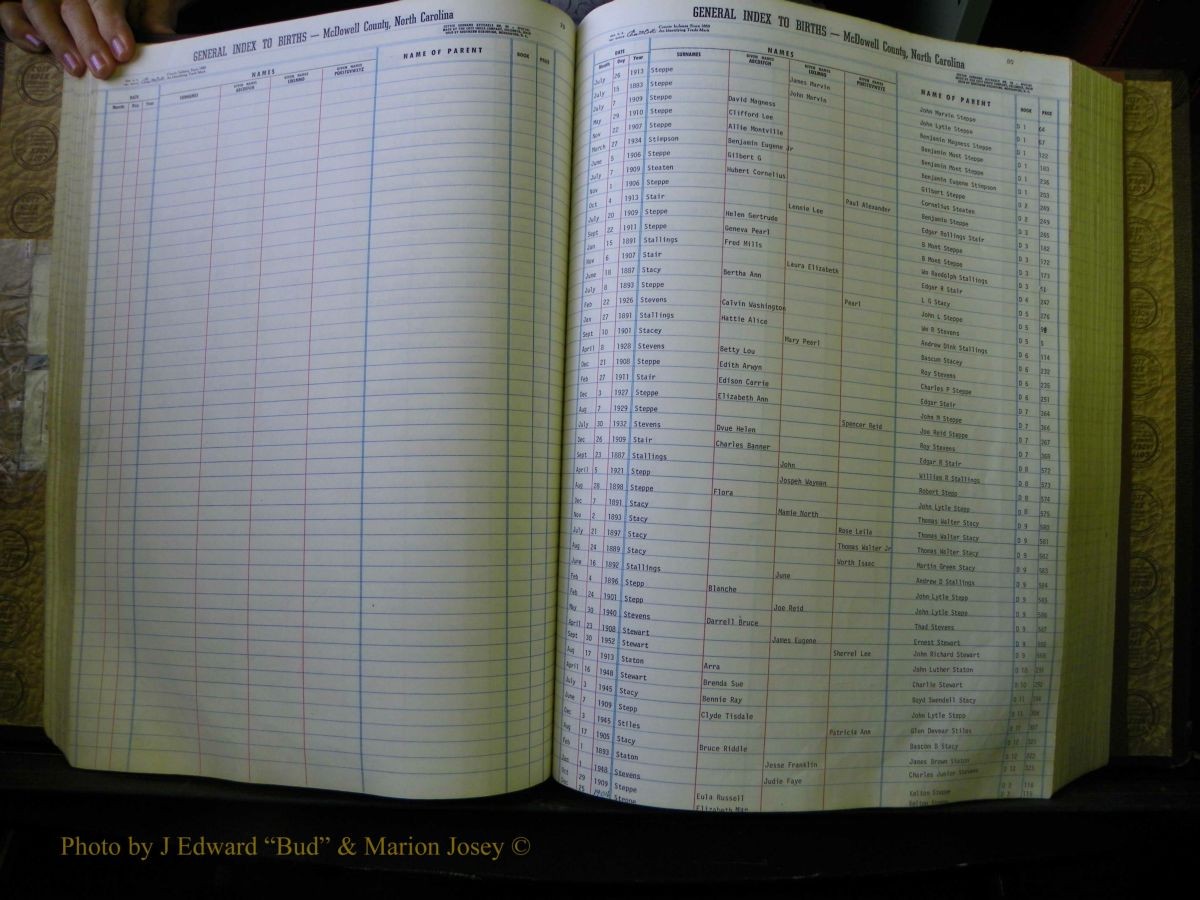 GENERAL INDEX TO BIRTHS — McDowell County, North Carolina
DATE SURNAMES NAMES NAME OF PARENT BOOK PAGE
Month Day Year GIVEN NAMES ABCDEFGH GIVEN NAMES IJKLMNO GIVEN NAMES PQRSTUVWXYZ
GENERAL INDEX TO BIRTHS — McDowell County, North Carolina
DATE SURNAMES NAMES NAME OF PARENT BOOK PAGE
Month Day Year GIVEN NAMES ABCDEFGH GIVEN NAMES IJKLMNO GIVEN NAMES PQRSTUVWXYZ
July 26 1913 Steppe James Marvin John Marvin Steppe D 1 64
July 15 1883 Steppe John Marvin John Lytle Steppe D 1 67
July 7 1909 Steppe David Magness Benjamin Magness Steppe D 1 122
May 29 1910 Steppe Clifford Lee Benjamin Most Steppe D 1 183
Nov 22 1907 Steppe Allie Montville Benjamin Most Steppe D 1 236
March 27 1934 Stimpson Benjamin Eugene Jr Benjamin Eugene Stimpson D 1 203
June 5 1906 Steppe Gilbert G Gilbert Steppe D 2 249
July 7 1909 Steaten Hubert Cornelius Cornelius Steaten D 2 249
Nov 1 1906 Steppe Paul Alexander Benjamin Steppe D 3 265
Oct 4 1913 Stair Lennie Lee Edgar Rollings Stair D 3 182
July 20 1909 Steppe Helen Gertrude B Mont Steppe D 3 172
Sept 22 1911 Steppe Geneva Pearl B Mont Steppe D 3 173
Jan 15 1891 Stallings Fred Mills Wm Randolph Stallings D 3 51
Nov 6 1907 Stair Laura Elizabeth Edgar R Stair D 4 247
June 18 1887 Stacy Bertha Ann L G Stacy D 5 276
July 8 1893 Steppe Pearl John L Steppe D 5
Feb 22 1926 Stevens Calvin Washington Wm R Stevens D 5 5
Jan 27 1891 Stallings Hattie Alice Andrew Dink Stallings D 6 114
Sept 10 1901 Stacey Mary Pearl Bascum Stacey D 6 232
April 8 1928 Stevens Betty Lou Roy Stevens D 6 235
Dec 21 1908 Steppe Edith Arwyn Charles P Steppe D 6 251
Feb 27 1911 Stair Edison Carrie Edgar Stair D 7 364
Dec 3 1927 Steppe Elizabeth Ann John M Steppe D 7 366
Aug 7 1929 Steppe Spencer Reid Joe Reid Steppe D 7 267
July 30 1932 Stevens Dvue Helen Roy Stevens D 7 368
Dec 26 1909 Stair Charles Banner Edgar R Stair D 8 572
Sept 23 1887 Stallings John William R Stallings D 8 573
April 5 1921 Stepp Jospeh Wayman Robert Stepp D 8 574
Aug 28 1898 Steppe Flora John Lytle Stepp D 8 575
Dec 7 1891 Stacy Mamie North Thomas Walter Stacy D 9 580
Nov 2 1893 Stacy Rose Leila Thomas Walter Stacy D 9 581
July 21 1897 Stacy Thomas Walter Jr Thomas Walter Stacy D 9 582
Aug 24 1889 Stacy Worth Isaac Martin Green Stacy D 9 583
June 16 1892 Stallings June Andrew D Stallings D 9 584
Feb 4 1896 Stepp Blanche John Lytle Stepp D 9 585
Feb 24 1901 Stepp Joe Reid John Lytle Stepp D 9 586
May 30 1940 Stevens Darrell Bruce Thad Stevens D 9 587
April 23 1908 Stewart James Eugene Ernest Stewart D 9
Sept 30 1952 Stewart Sherrel Lee John Richard Stewart D 9
Aug 17 1913 Staton Arra John Luther Staton D 10
April 16 1948 Stewart Brenda Sue Charlie Stewart D 10
July 3 1945 Stacy Bennie Ray Boyd Swendell Stacy D 11
June 7 1909 Stepp Clyde Tisdale John Lytle Stepp D 11
Dec 3 1945 Stiles Patricia Ann Glen Devear Stiles
Aug 17 1905 Stacy Bruce Riddle Bascom B Stacy D 12
Feb 1 1893 Staton Jesse Franklin James Brown Staton D 12
Jan 1 1948 Stevens Judie Faye Charles Junior Stevens D 12
Oct 29 1909 Steppe Eula Russell Kelton Steppe D 3 118
Dec 25 1908 Steppe Elizabeth Mae Kelton Steppe
Photo by J Edward “Bud” & Marion Josey ©